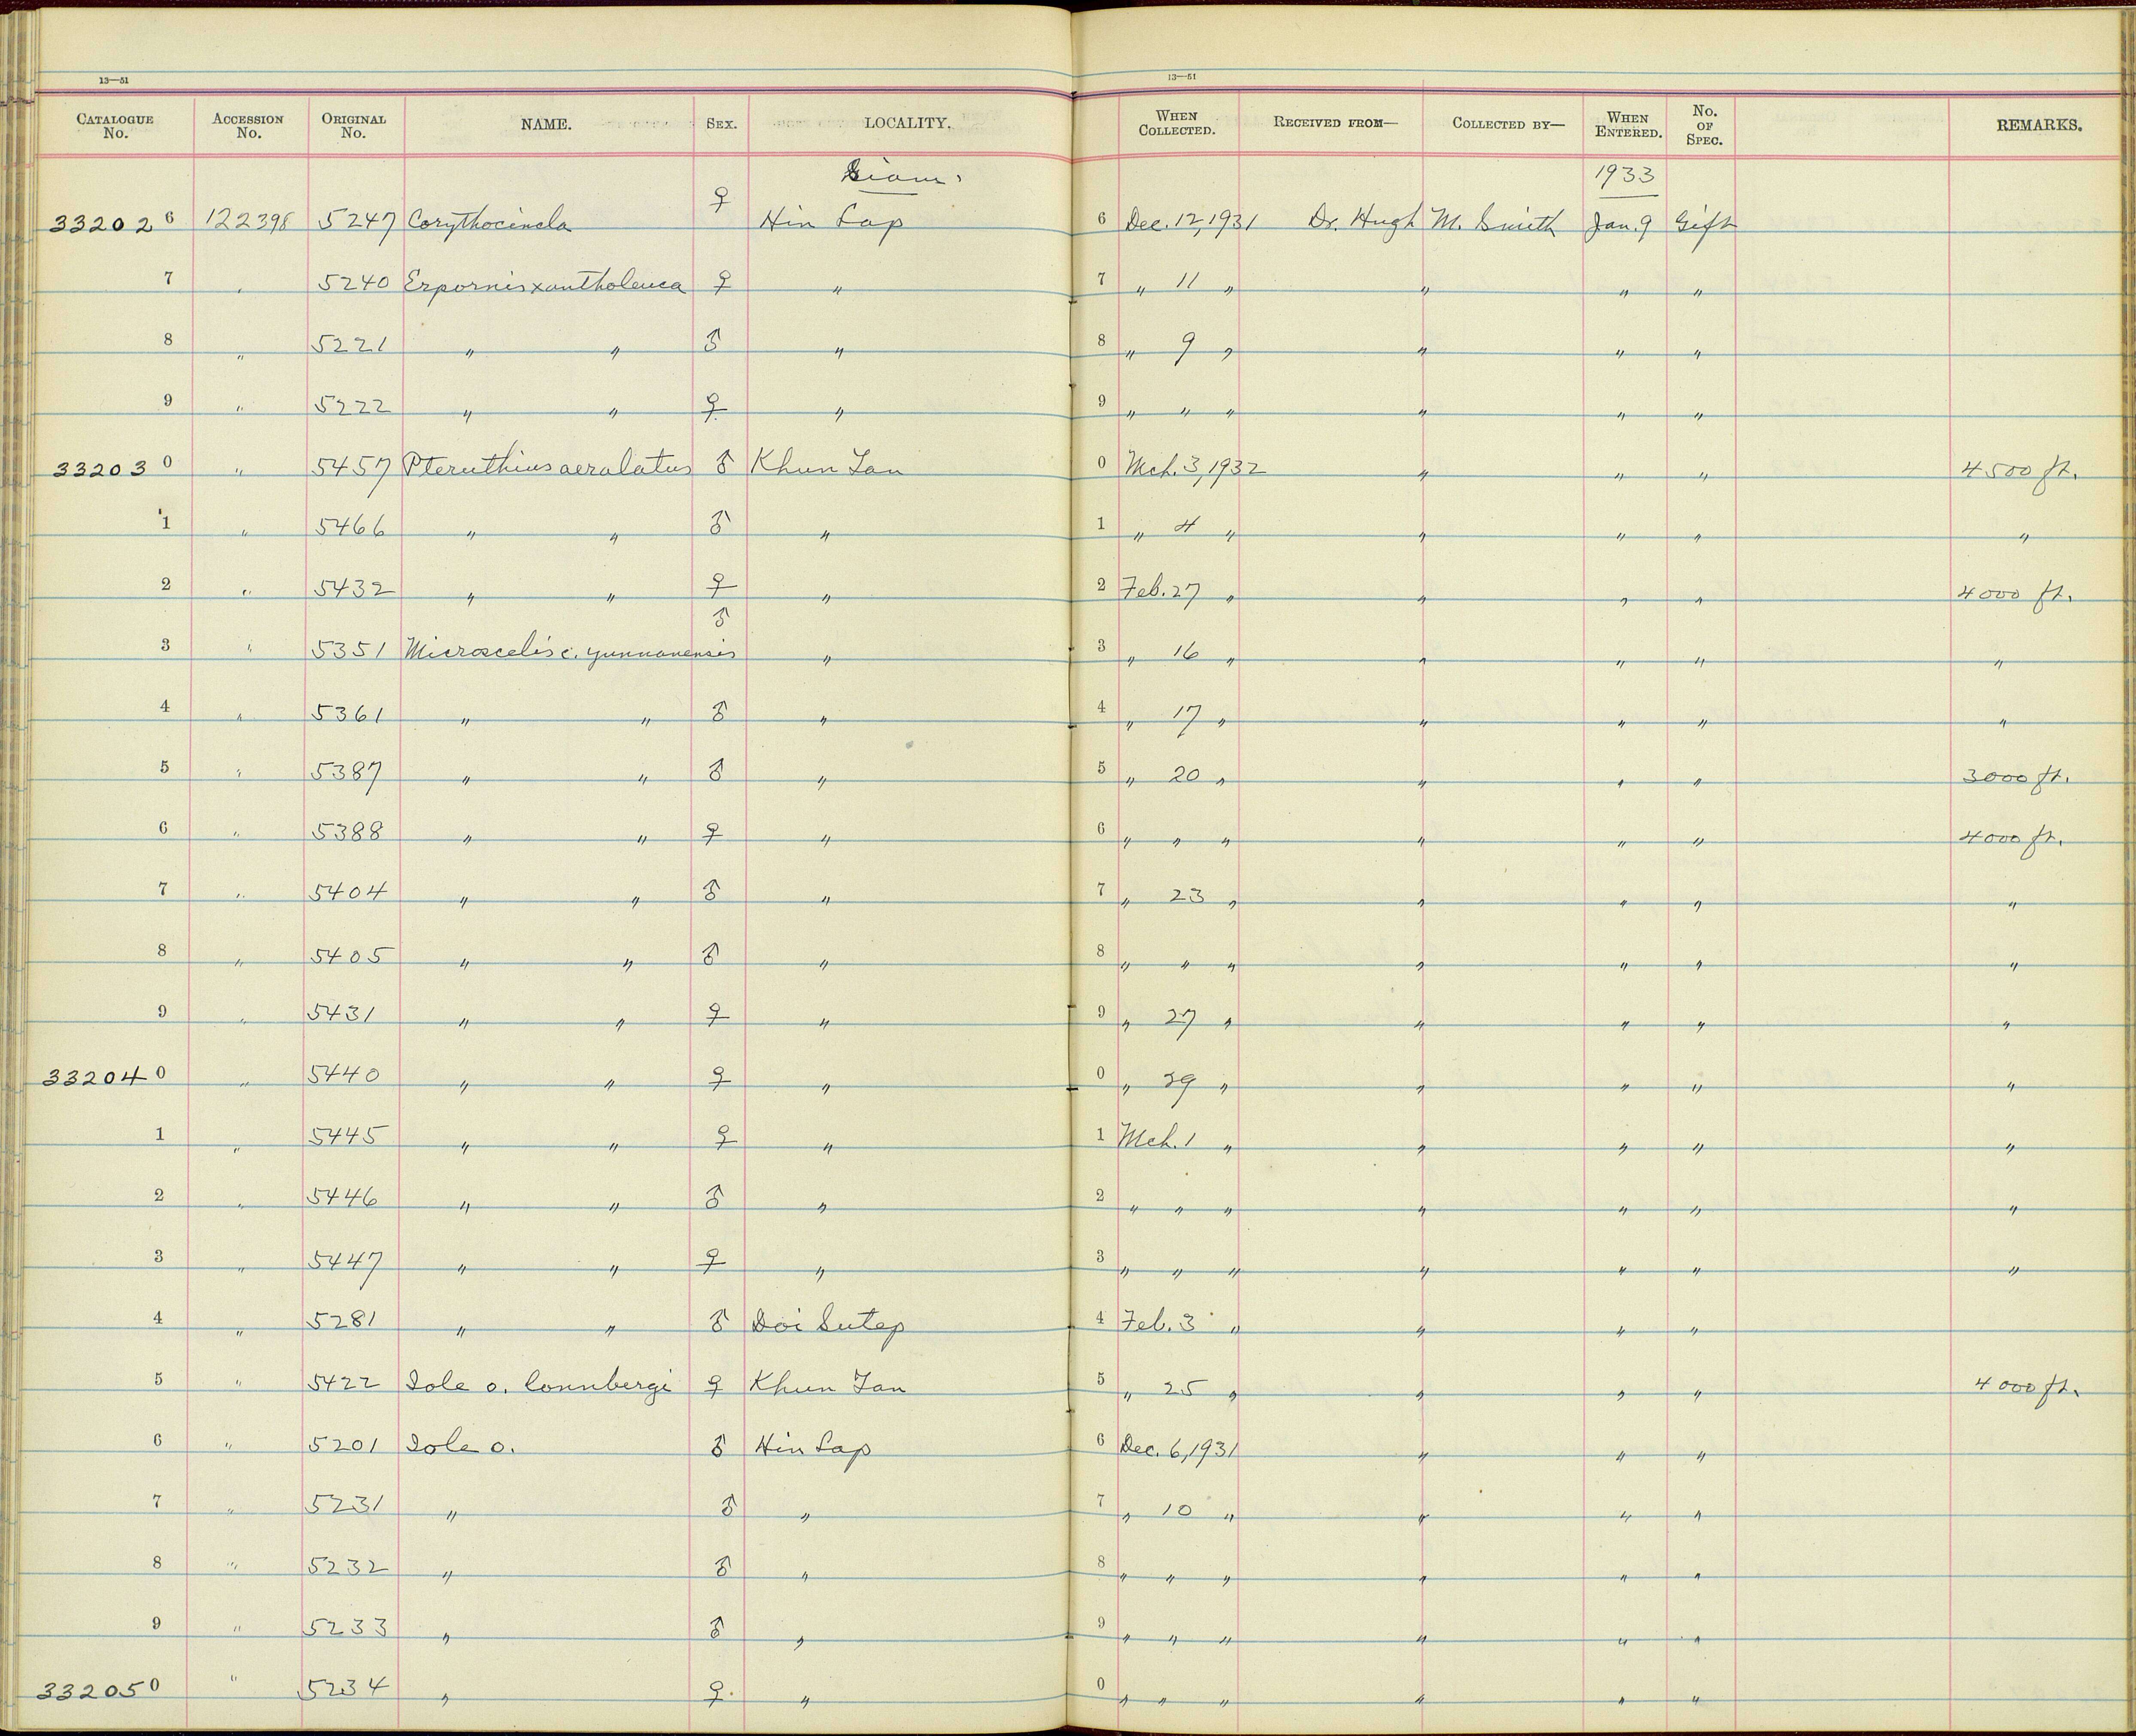 13—51 13—51
CATALOGUE No. ACCESSION No. ORIGINAL No. NAME. SEX. LOCALITY. WHEN COLLECTED. RECEIVED FROM— COLLECTED BY— WHEN ENTERED. No. OF SPEC. REMARKS.
Siam. 1933
332026 122398 5247 Corythocincla ♀ Hin Lap 6 Dec. 12, 1931 Dr. Hugh M. Smith Jan. 9 Gift
7 " 5240 Erpornis xantholeuca ♀ " 7 " 11 " " " "
8 " 5221 " " ♂ " 8 " 9 " " " "
9 " 5222 " " ♀ " 9 " " " " " "
332030 " 5457 Pteruthius aeralatus ♂ Khun Tan 0 Mch. 3, 1932 " " " 4500 ft.
1 " 5466 " " ♂ " 1 " 4 " " " " "
2 " 5432 " " ♀ " 2 Feb. 27 " " " " 4000 ft.
3 " 5351 Microscelis c. yunnanensis ♂ " 3 " 16 " " " " "
4 " 5361 " " ♂ " 4 " 17 " " " " "
5 " 5387 " " ♂ " 5 " 20 " " " " 3000 ft.
6 " 5388 " " ♀ " 6 " " " " " " 4000 ft.
7 " 5404 " " ♂ " 7 " 23 " " " " "
8 " 5405 " " ♂ " 8 " " " " " " "
9 " 5431 " " ♀ " 9 " 27 " " " " "
332040 " 5440 " " ♀ " 0 " 29 " " " " "
1 " 5445 " " ♀ " 1 Mch. 1 " " " " "
2 " 5446 " " ♂ " 2 " " " " " " "
3 " 5447 " " ♀ " 3 " " " " " " "
4 " 5281 " " ♂ Doi Sutep 4 Feb. 3 " " " "
5 " 5422 Iole o. lonnbergi ♀ Khun Tan 5 " 25 " " " " 4000 ft.
6 " 5201 Iole o. ♂ Hin Lap 6 Dec. 6, 1931 " " "
7 " 5231 " ♂ " 7 " 10 " " " "
8 " 5232 " ♂ " 8 " " " " " "
9 " 5233 " ♂ " 9 " " " " " "
332050 " 5234 " ♀ " 0 " " " " " "